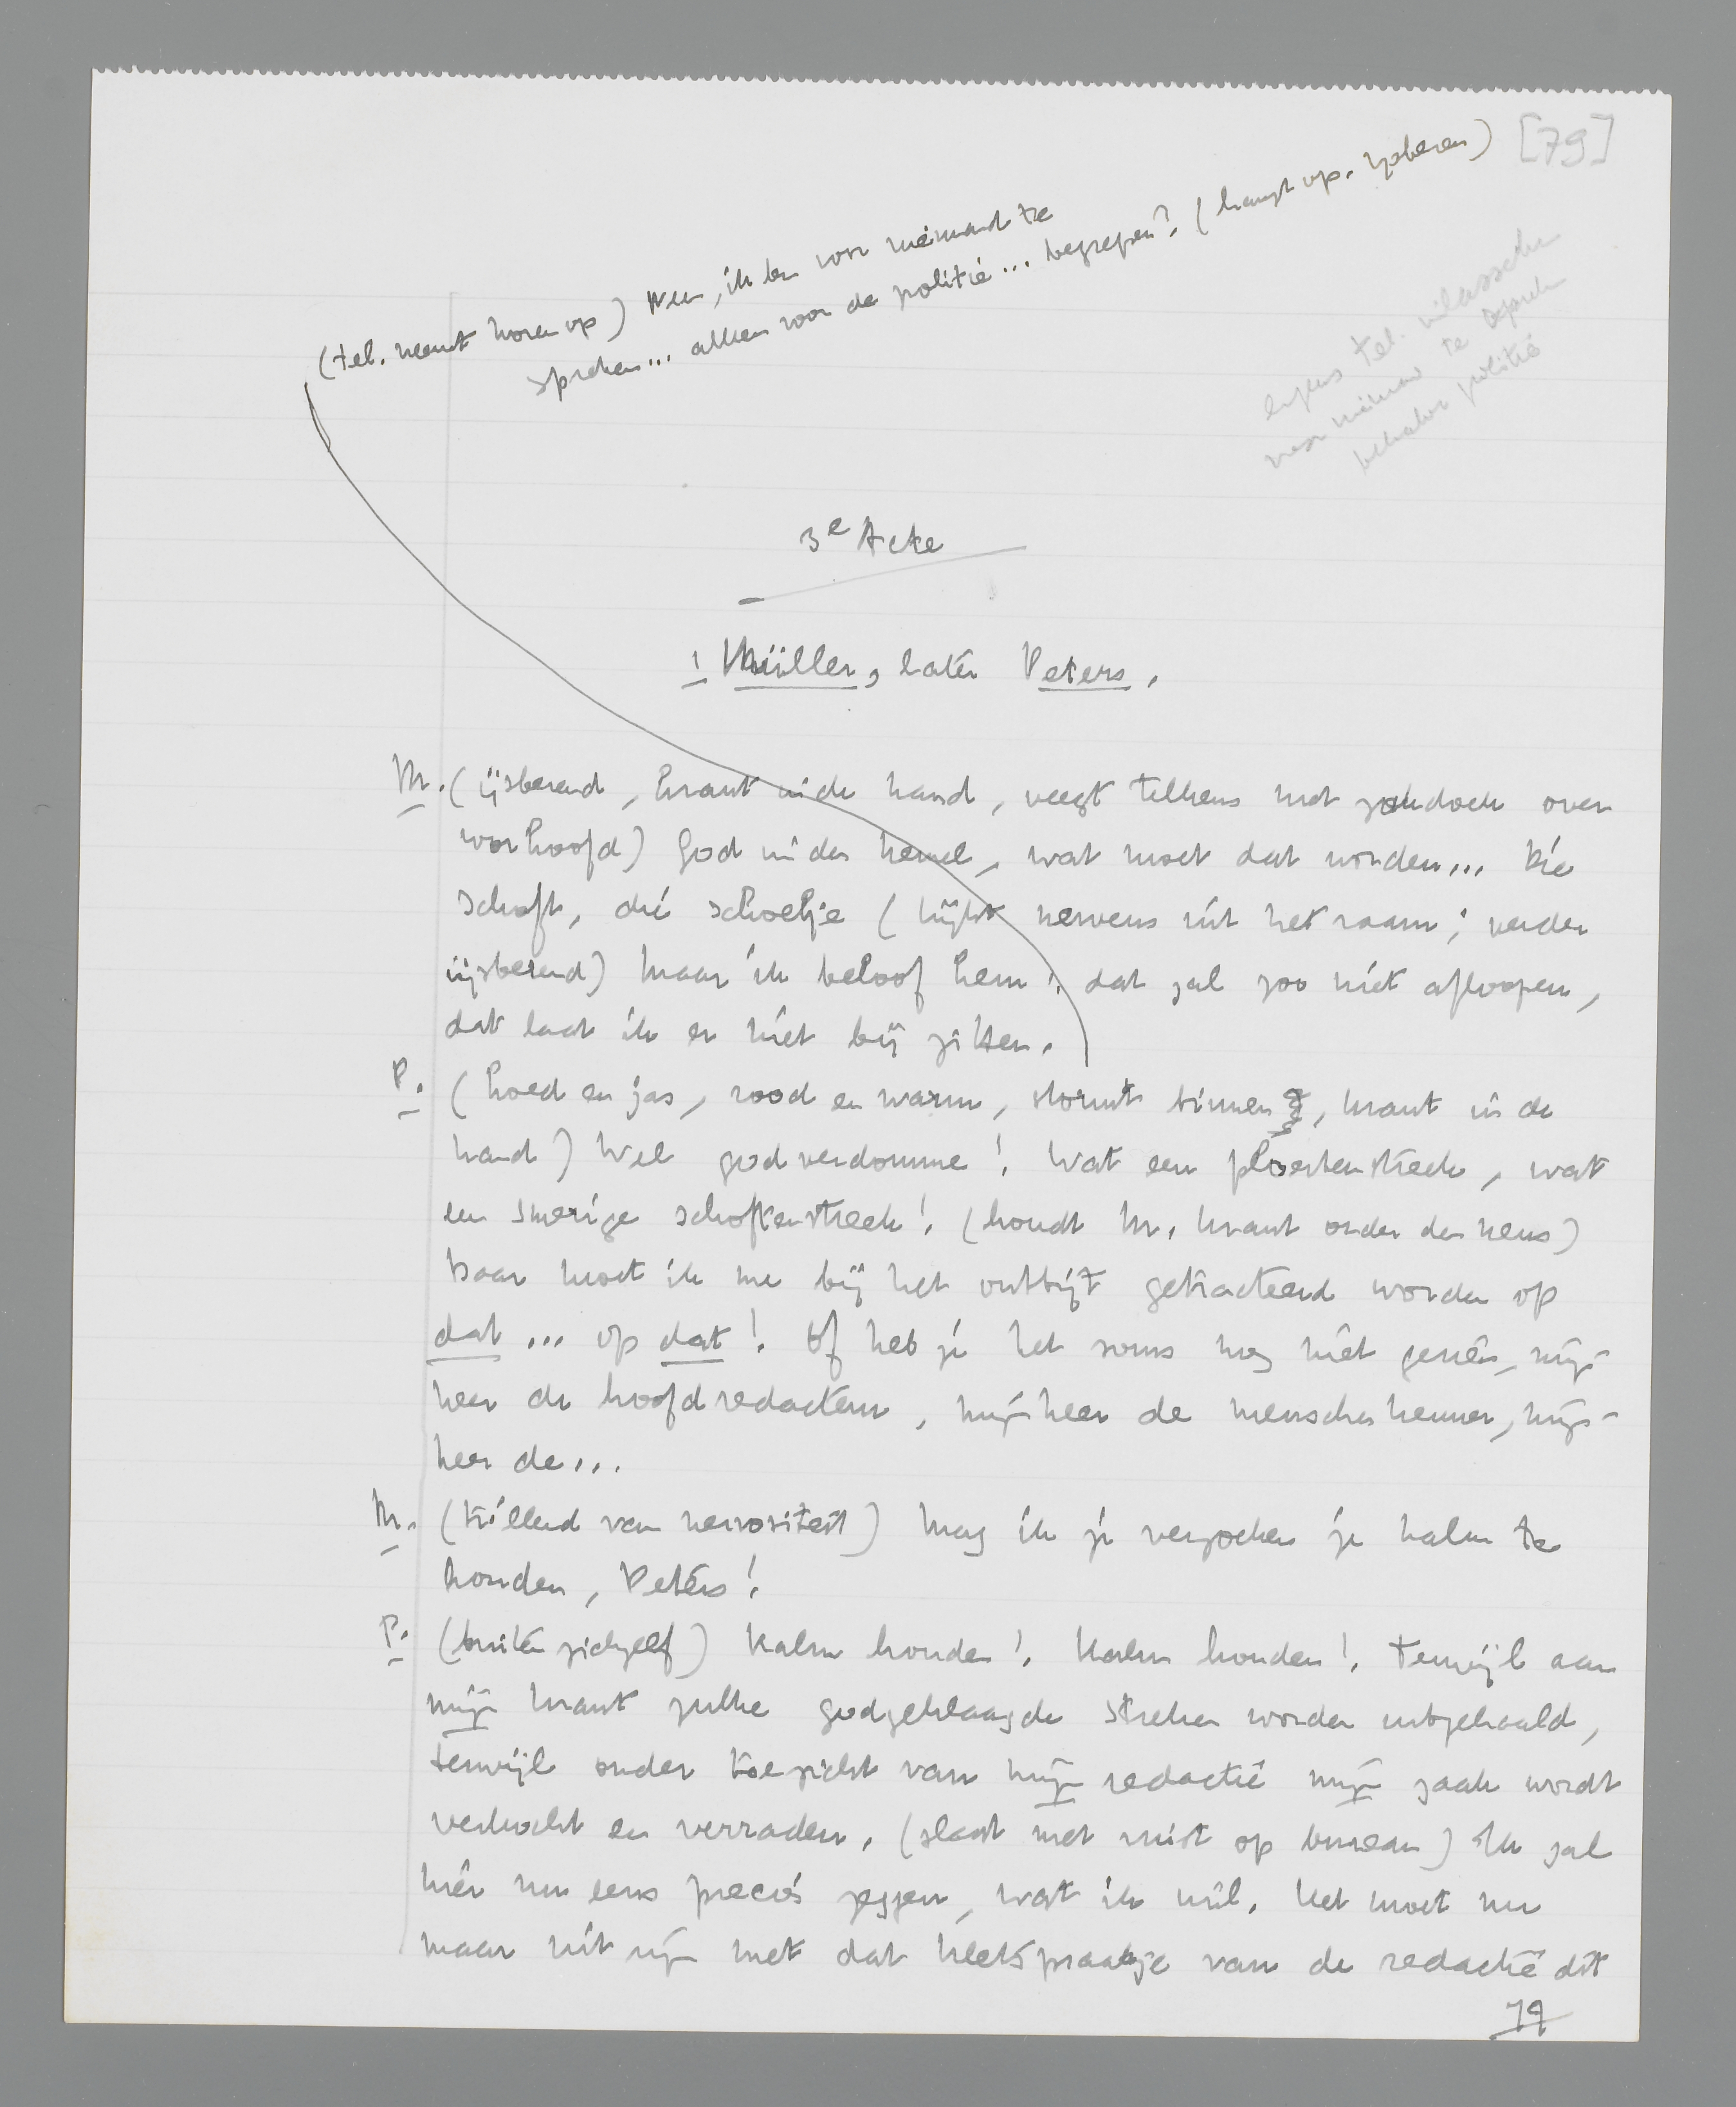 [79]
(tel. neemt horen op) Neen, ik ben voor niemand te
spreken... alleen voor de politie... begrepen? (hangt op. ijsberen)
tel.
voor te
behalve politie
3e Acte
1 Müller, later Peters.
M. (ijsberend, krant in de hand, veegt telkens met zakdoek over
voorhoofd) God in den hemel, wat moet dat worden... Die
schoft, die schoelje (kijkt nerveus uit het raam; verder
ijsberend) Maar ik beloof hem! dat zal zoo niet afloopen,
dat laat ik er niet bij zitten.
P. (hoed en jas, rood en warm, stormt binnen, krant in de
hand) Wel godverdomme! Wat een ploertenstreek, wat
een smerige schoftenstreek! (houdt M. krant onder den neus)
Daar moet ik me bij het ontbijt getracteerd worden op
dat... op dat! Of heb je het soms nog niet gezien, mijn-
heer de hoofdredacteur, mijnheer de menschenkenner, mijn-
heer de...
M. (trillend van nervositeit) Mag ik je verzoeken je kalm te
houden, Peters!
P. (buiten zichzelf) Kalm houden! Kalm houden! Terwijl aan
mijn krant zulke godgeklaagde streken worden uitgehaald,
terwijl onder toezicht van mijn redactie mijn zaak wordt
verkocht en verraden. (slaat met vuist op bureau) Ik zal
hier nu eens precies zeggen, wat ik wil. Het moet nu
maar uit zijn met dat kletspraatje van de redactie dit
79